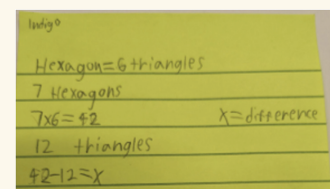 Indigo
Hexagon=6 triangles
7 Hexagons
7x6=42 X=difference
12 triangles
42-12=x